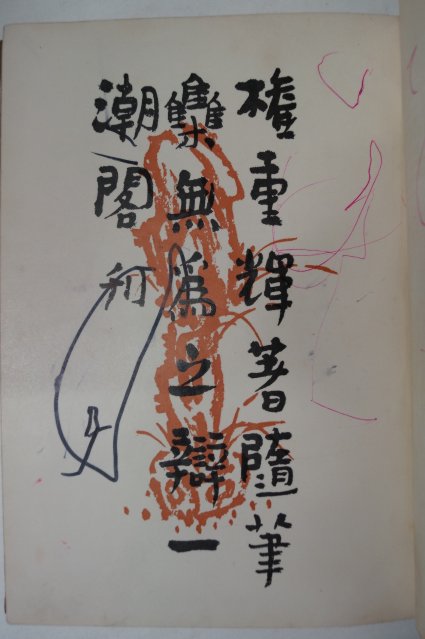 權重輝著隨筆
雧無爲之辯一
潮閣刊